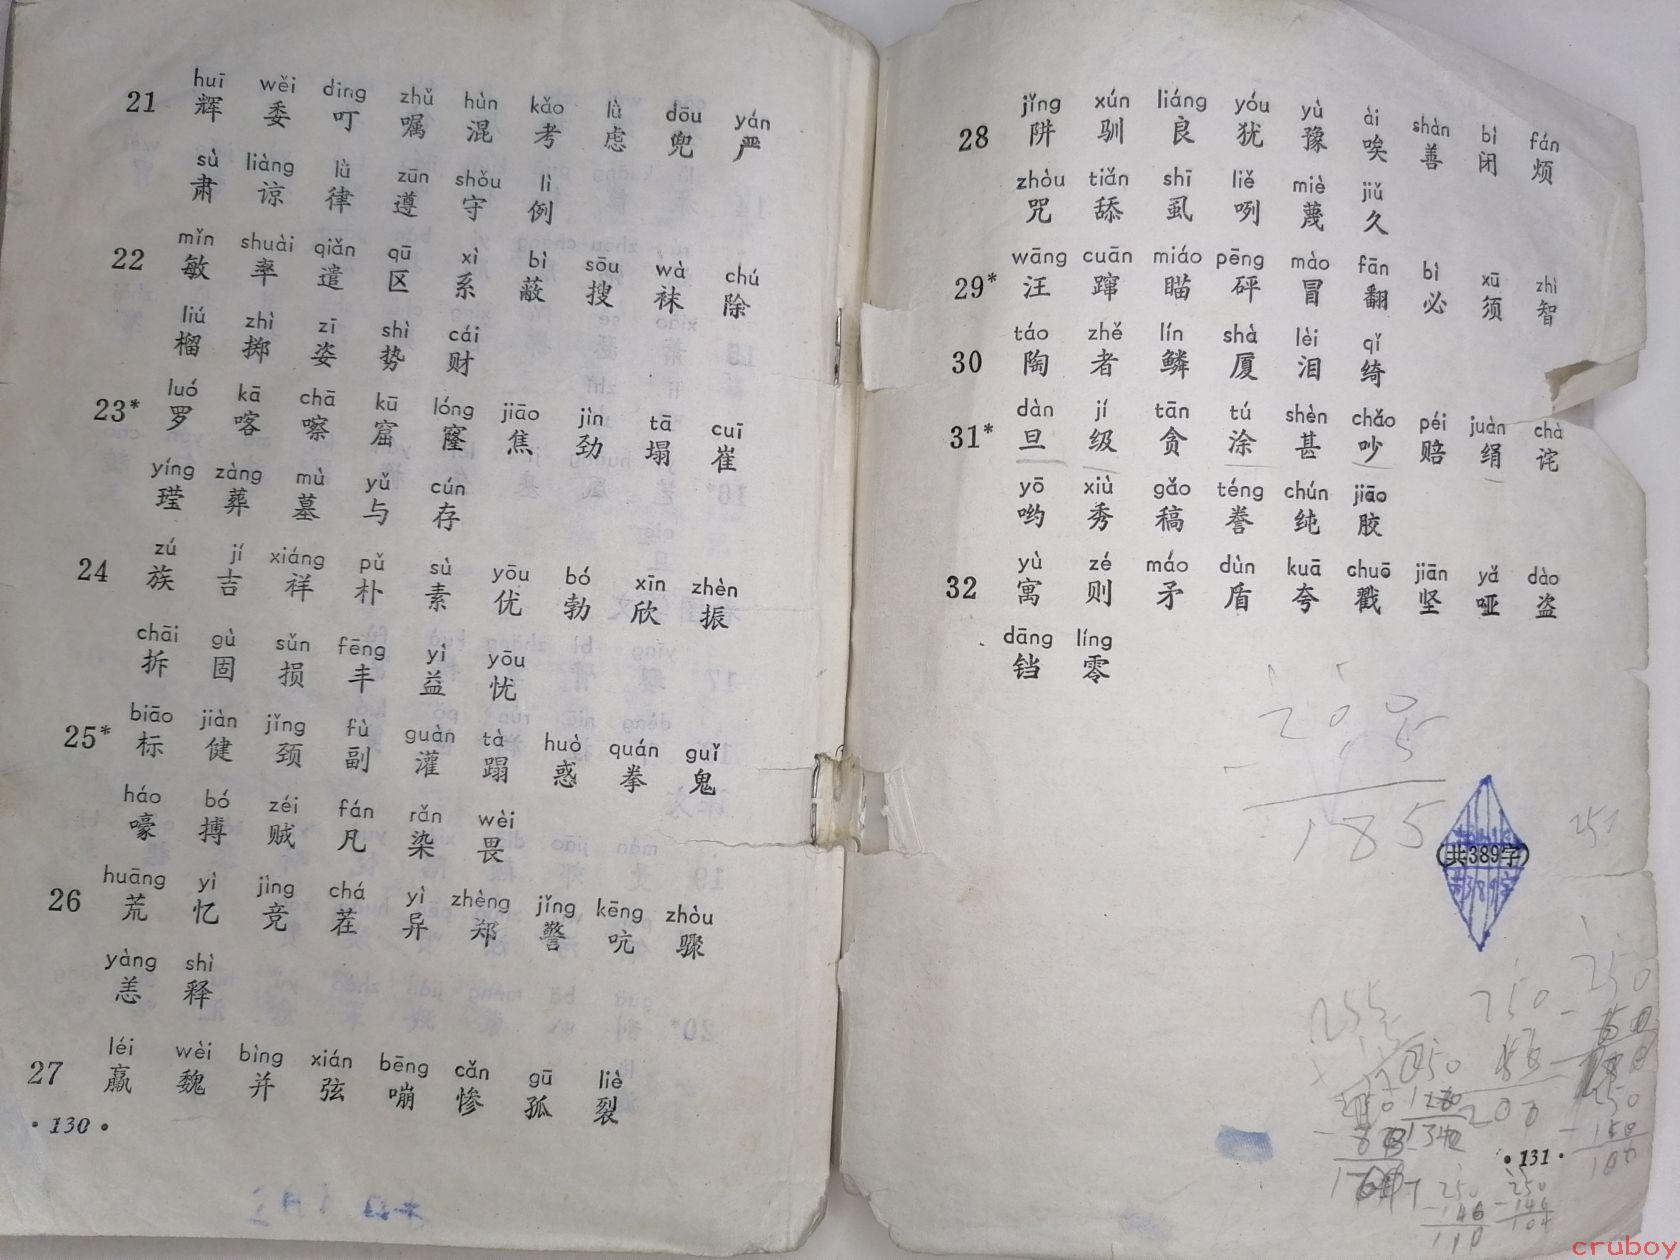 huī wěi dīng zhǔ hùn kǎo lǜ dōu yán
21 辉 委 叮 嘱 混 考 虑 兜 严
sù liàng lǜ zūn shǒu lì
肃 谅 律 遵 守 例
mǐn shuài qiǎn qū xì bì sōu wà chú
22 敏 率 遣 区 系 蔽 搜 袜 除
liú zhì zī shì cái
榴 掷 姿 势 财
luó kā chā kū lóng jiāo jìn tā cuī
23* 罗 喀 嚓 窟 窿 焦 劲 塌 崔
yíng zàng mù yǔ cún
莹 葬 墓 与 存
zú jí xiáng pǔ sù yōu bó xīn zhèn
24 族 吉 祥 朴 素 优 勃 欣 振
chāi gù sǔn fēng yì yōu
拆 固 损 丰 益 忧
biāo jiàn jǐng fù guàn tà huò quán guǐ
25* 标 健 颈 副 灌 蹋 惑 拳 鬼
háo bó zéi fán rǎn wèi
嚎 搏 贼 凡 染 畏
huāng yì jìng chá yì zhèng jǐng kēng zhòu
26 荒 忆 竞 茬 异 郑 警 吭 骤
yàng shì
恙 释
léi wèi bìng xián bēng cǎn gū liè
27 羸 魏 并 弦 嘣 惨 孤 裂
·130·
jǐng xún liáng yóu yù ài shàn bì fán
28 阱 驯 良 犹 豫 唉 善 闭 烦
zhòu tiǎn shī liě miè jiǔ
咒 舔 虱 咧 蔑 久
wāng cuān miáo pēng mào fān bì xū zhì
29* 汪 蹿 瞄 砰 冒 翻 必 须 智
táo zhě lín shà lèi qǐ
30 陶 者 鳞 厦 泪 绮
dàn jí tān tú shèn chǎo péi juàn chà
31* 旦 级 贪 涂 甚 吵 赔 绢 诧
yō xiù gǎo téng chún jiāo
哟 秀 稿 誊 纯 胶
yù zé máo dùn kuā chuō jiān yǎ dào
32 寓 则 矛 盾 夸 戳 坚 哑 盗
dāng líng
铛 零
200
- 15
185
(共389字)
·131·
cruboy